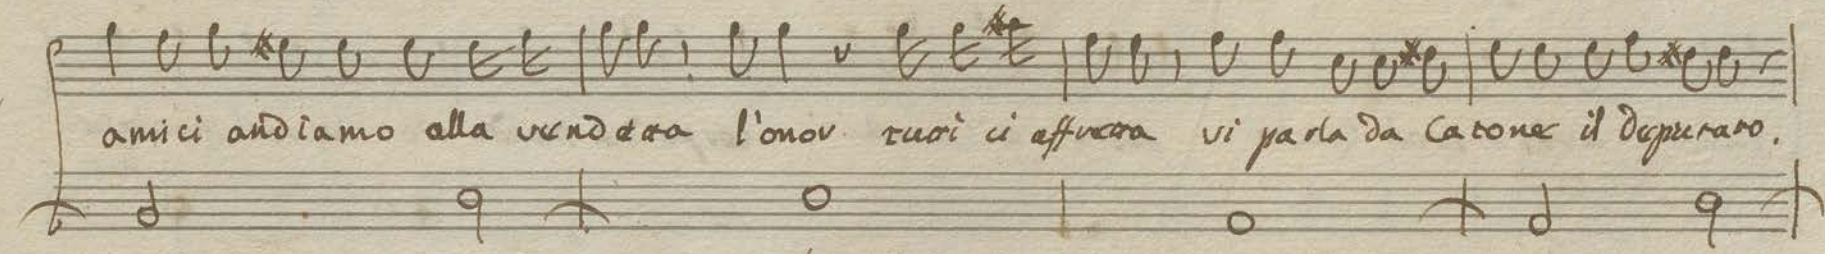 amici andiamo alla vendetta l'onor tutti ci affretta vi parla da Catone il deputato.